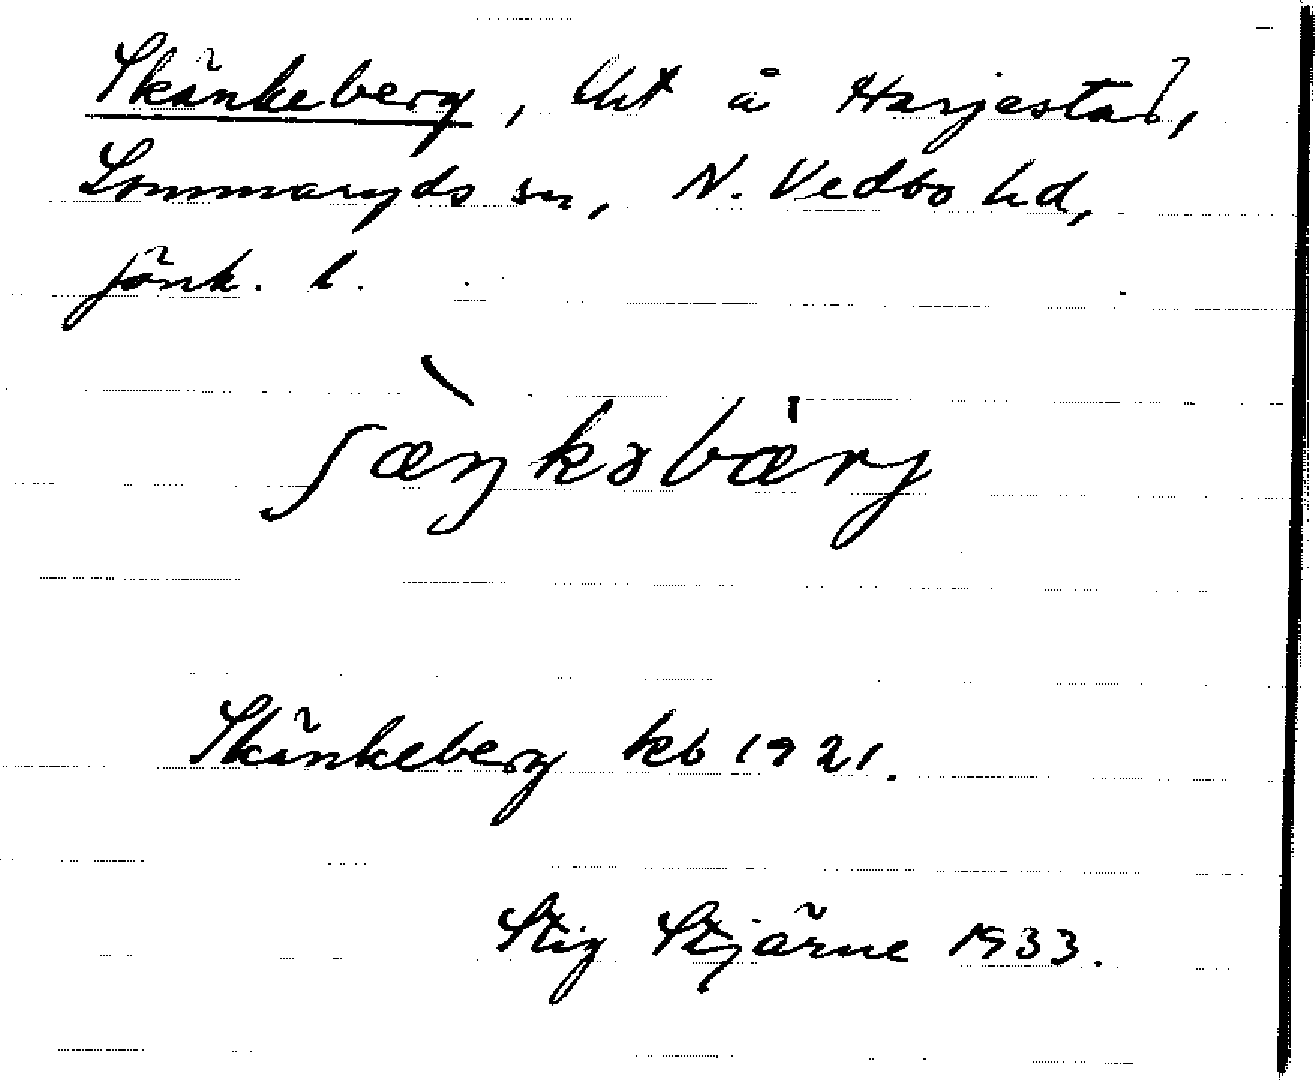 Skänkeberg, lht å Harjestad,
Lommaryds sn, N. Vedbo hd,
Jönk. l.
ʃæ̀ŋkəbærj
Skänkeberg kb 1921.
Stig Stjärne 1933.